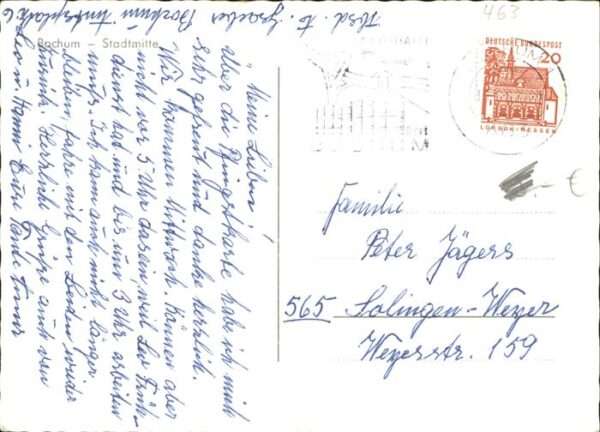 Absd. E. Bochum
463
Bochum – Stadtmitte
Meine Lieben!
Über die Pfingstkarte habe ich mich
sehr gefreut und danke herzlich.
Wir kommen Mittwoch. Können aber
nicht vor 5 Uhr da sein, weil Leo Früh-
dienst hat und bis um 3 Uhr arbeiten
muß. Ich kann auch nicht länger
bleiben, fahre mit den beiden wieder
zurück. Herzliche Grüße auch von
Leo u. Hanni Eure Tante
DEUTSCHE BUNDESPOST
20
LORSCH · HESSEN
Familie
Peter Jägers
565 Solingen-Weyer
Weyerstr. 159
- €